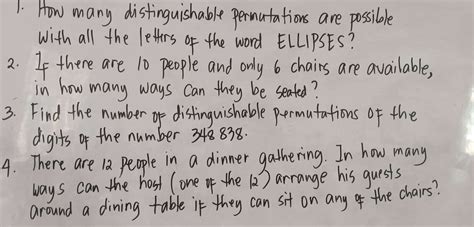 1. How many distinguishable permutations are possible
with all the letters of the word ELLIPSES?
2. If there are 10 people and only 6 chairs are available,
in how many ways can they be seated?
3. Find the number of distinguishable permutations of the
digits of the number 348 838.
4. There are 12 people in a dinner gathering. In how many
ways can the host (one of the 12) arrange his guests
around a dining table if they can sit on any of the chairs?